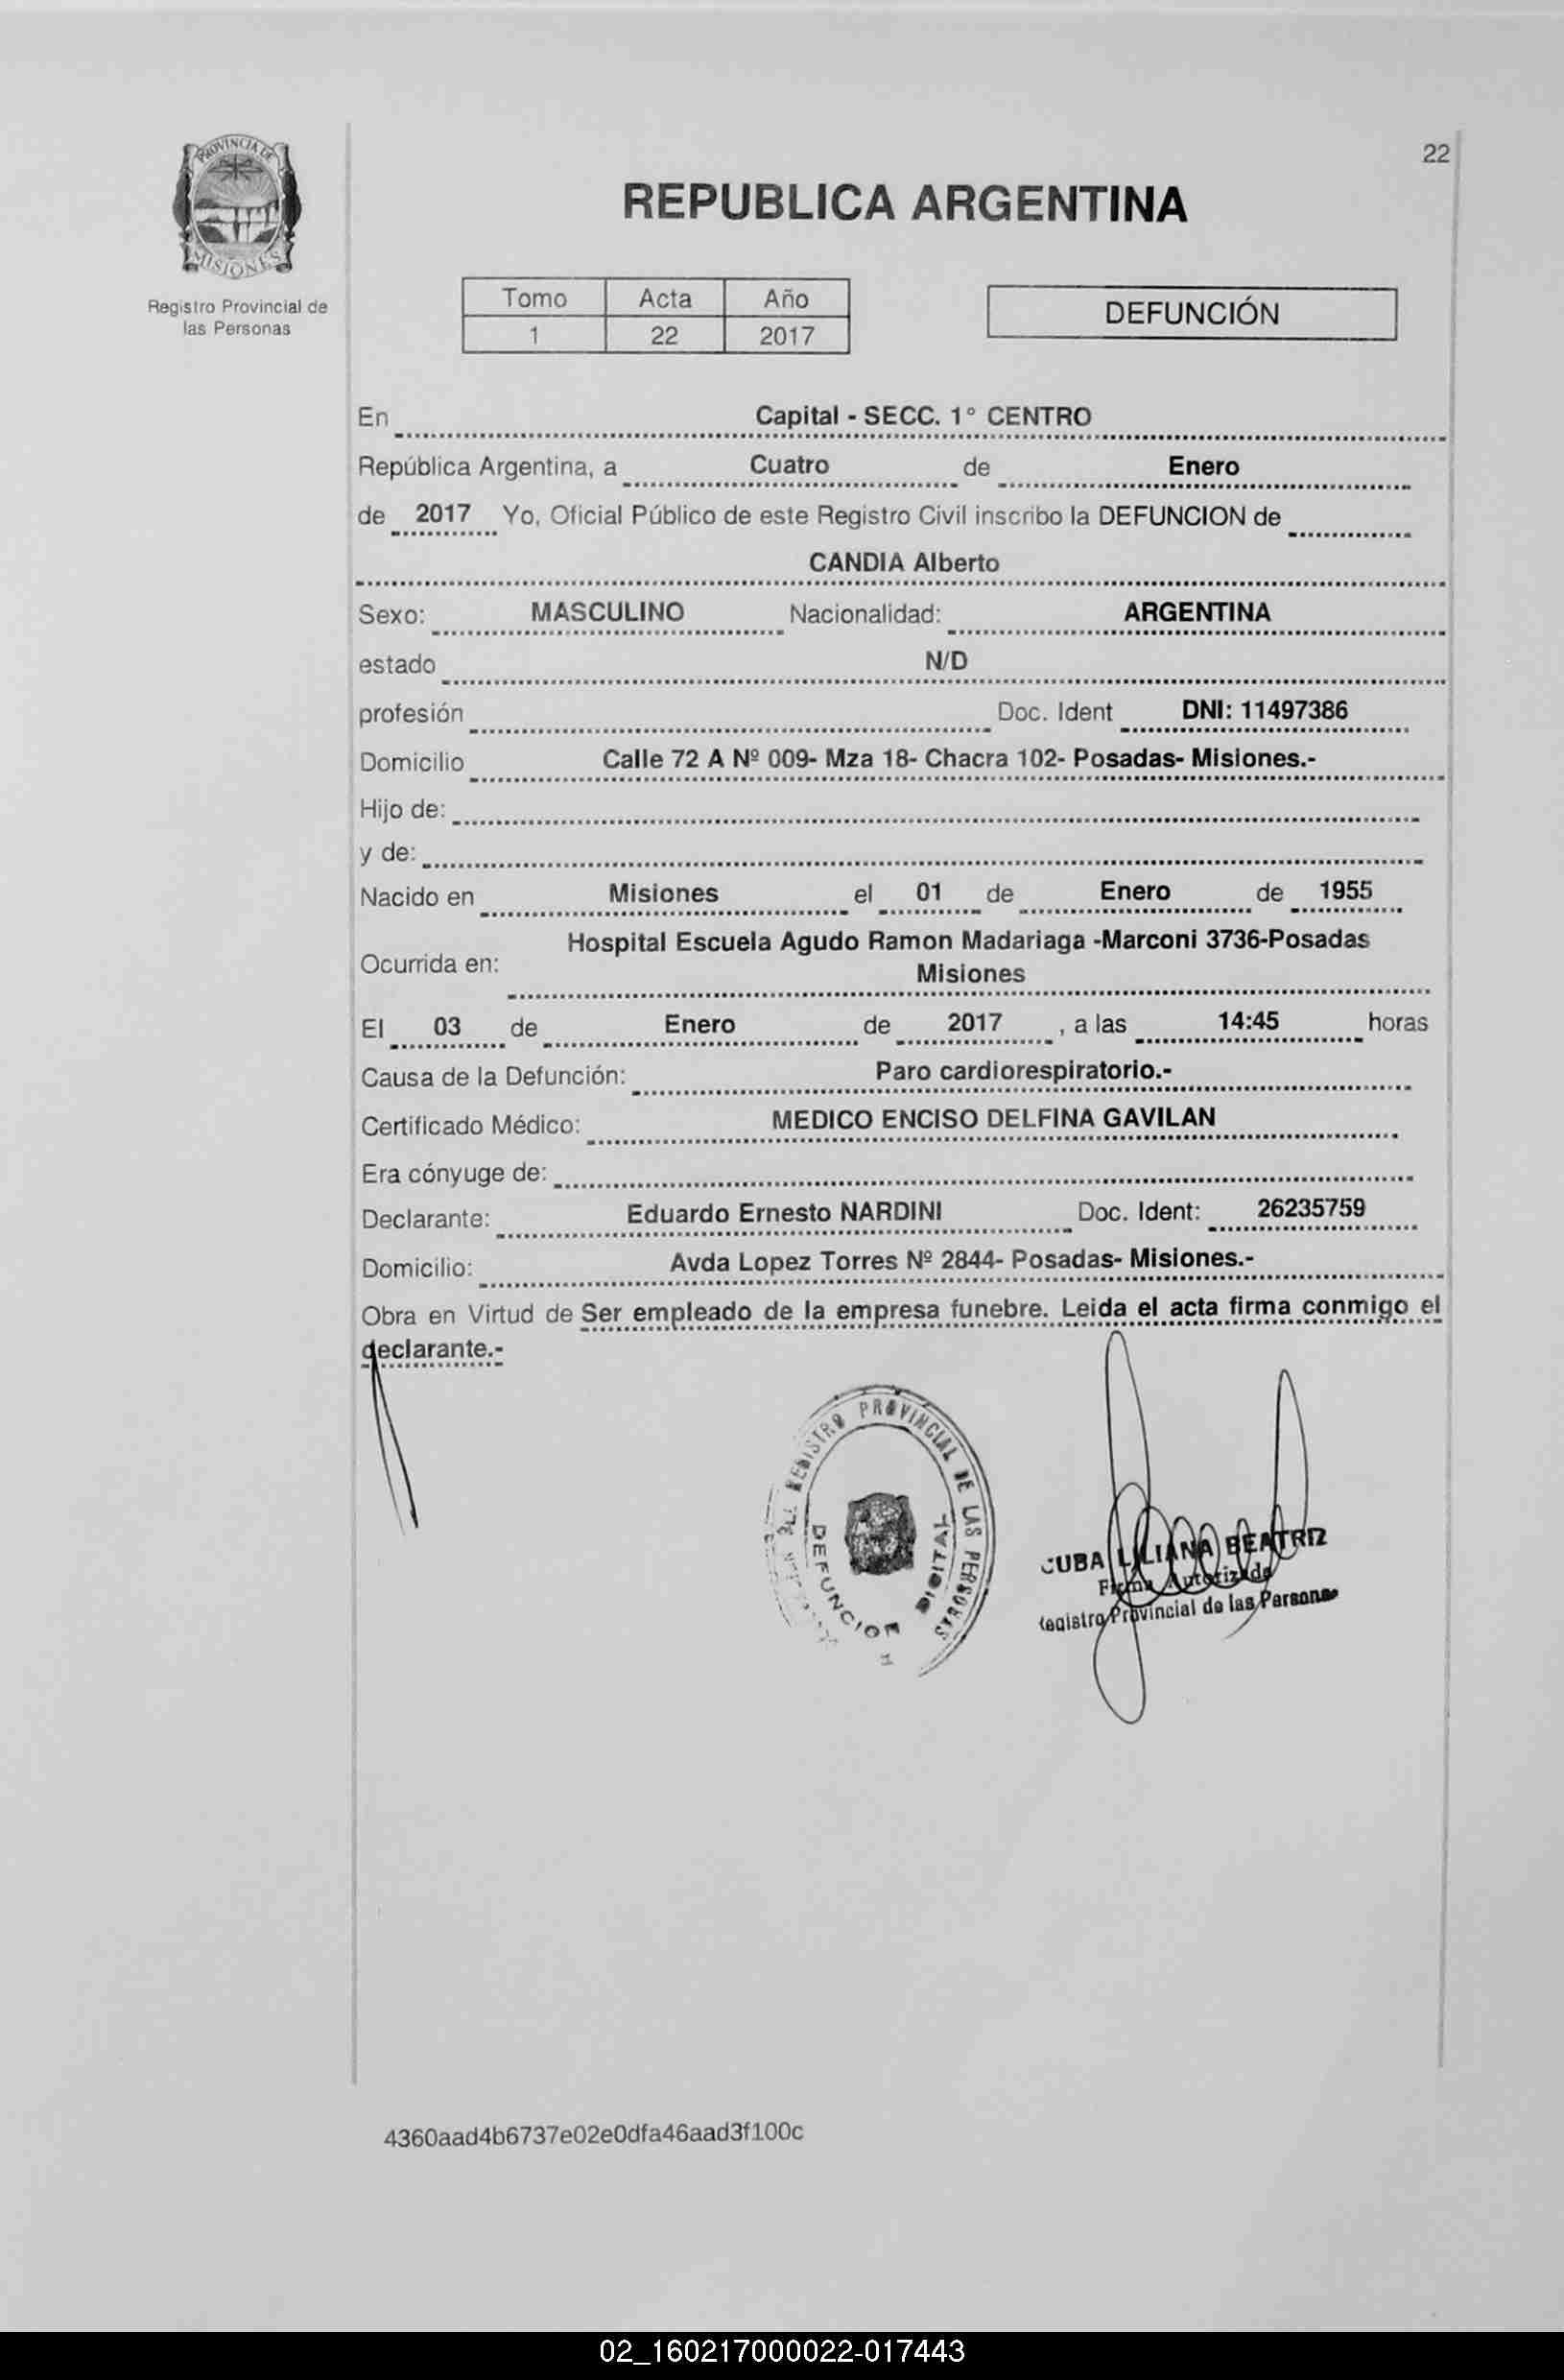 22
PROVINCIA DE
MISIONES
Registro Provincial de
las Personas
REPUBLICA ARGENTINA
Tomo Acta Año
1 22 2017
DEFUNCIÓN
En Capital - SECC. 1° CENTRO
República Argentina, a Cuatro de Enero
de 2017 Yo, Oficial Público de este Registro Civil inscribo la DEFUNCION de
CANDIA Alberto
Sexo: MASCULINO Nacionalidad: ARGENTINA
estado N/D
profesión Doc. Ident DNI: 11497386
Domicilio Calle 72 A Nº 009- Mza 18- Chacra 102- Posadas- Misiones.-
Hijo de:
y de:
Nacido en Misiones el 01 de Enero de 1955
Hospital Escuela Agudo Ramon Madariaga -Marconi 3736-Posadas
Ocurrida en: Misiones
El 03 de Enero de 2017 , a las 14:45 horas
Causa de la Defunción: Paro cardiorespiratorio.-
Certificado Médico: MEDICO ENCISO DELFINA GAVILAN
Era cónyuge de:
Declarante: Eduardo Ernesto NARDINI Doc. Ident: 26235759
Domicilio: Avda Lopez Torres Nº 2844- Posadas- Misiones.-
Obra en Virtud de Ser empleado de la empresa funebre. Leida el acta firma conmigo el
declarante.-
REGISTRO PROVINCIAL DE LAS PERSONAS
DEFUNCION DIGITAL
CUBA LILIANA BEATRIZ
Firma Autorizada
Registro Provincial de las Personas
4360aad4b6737e02e0dfa46aad3f100c
02_160217000022-017443